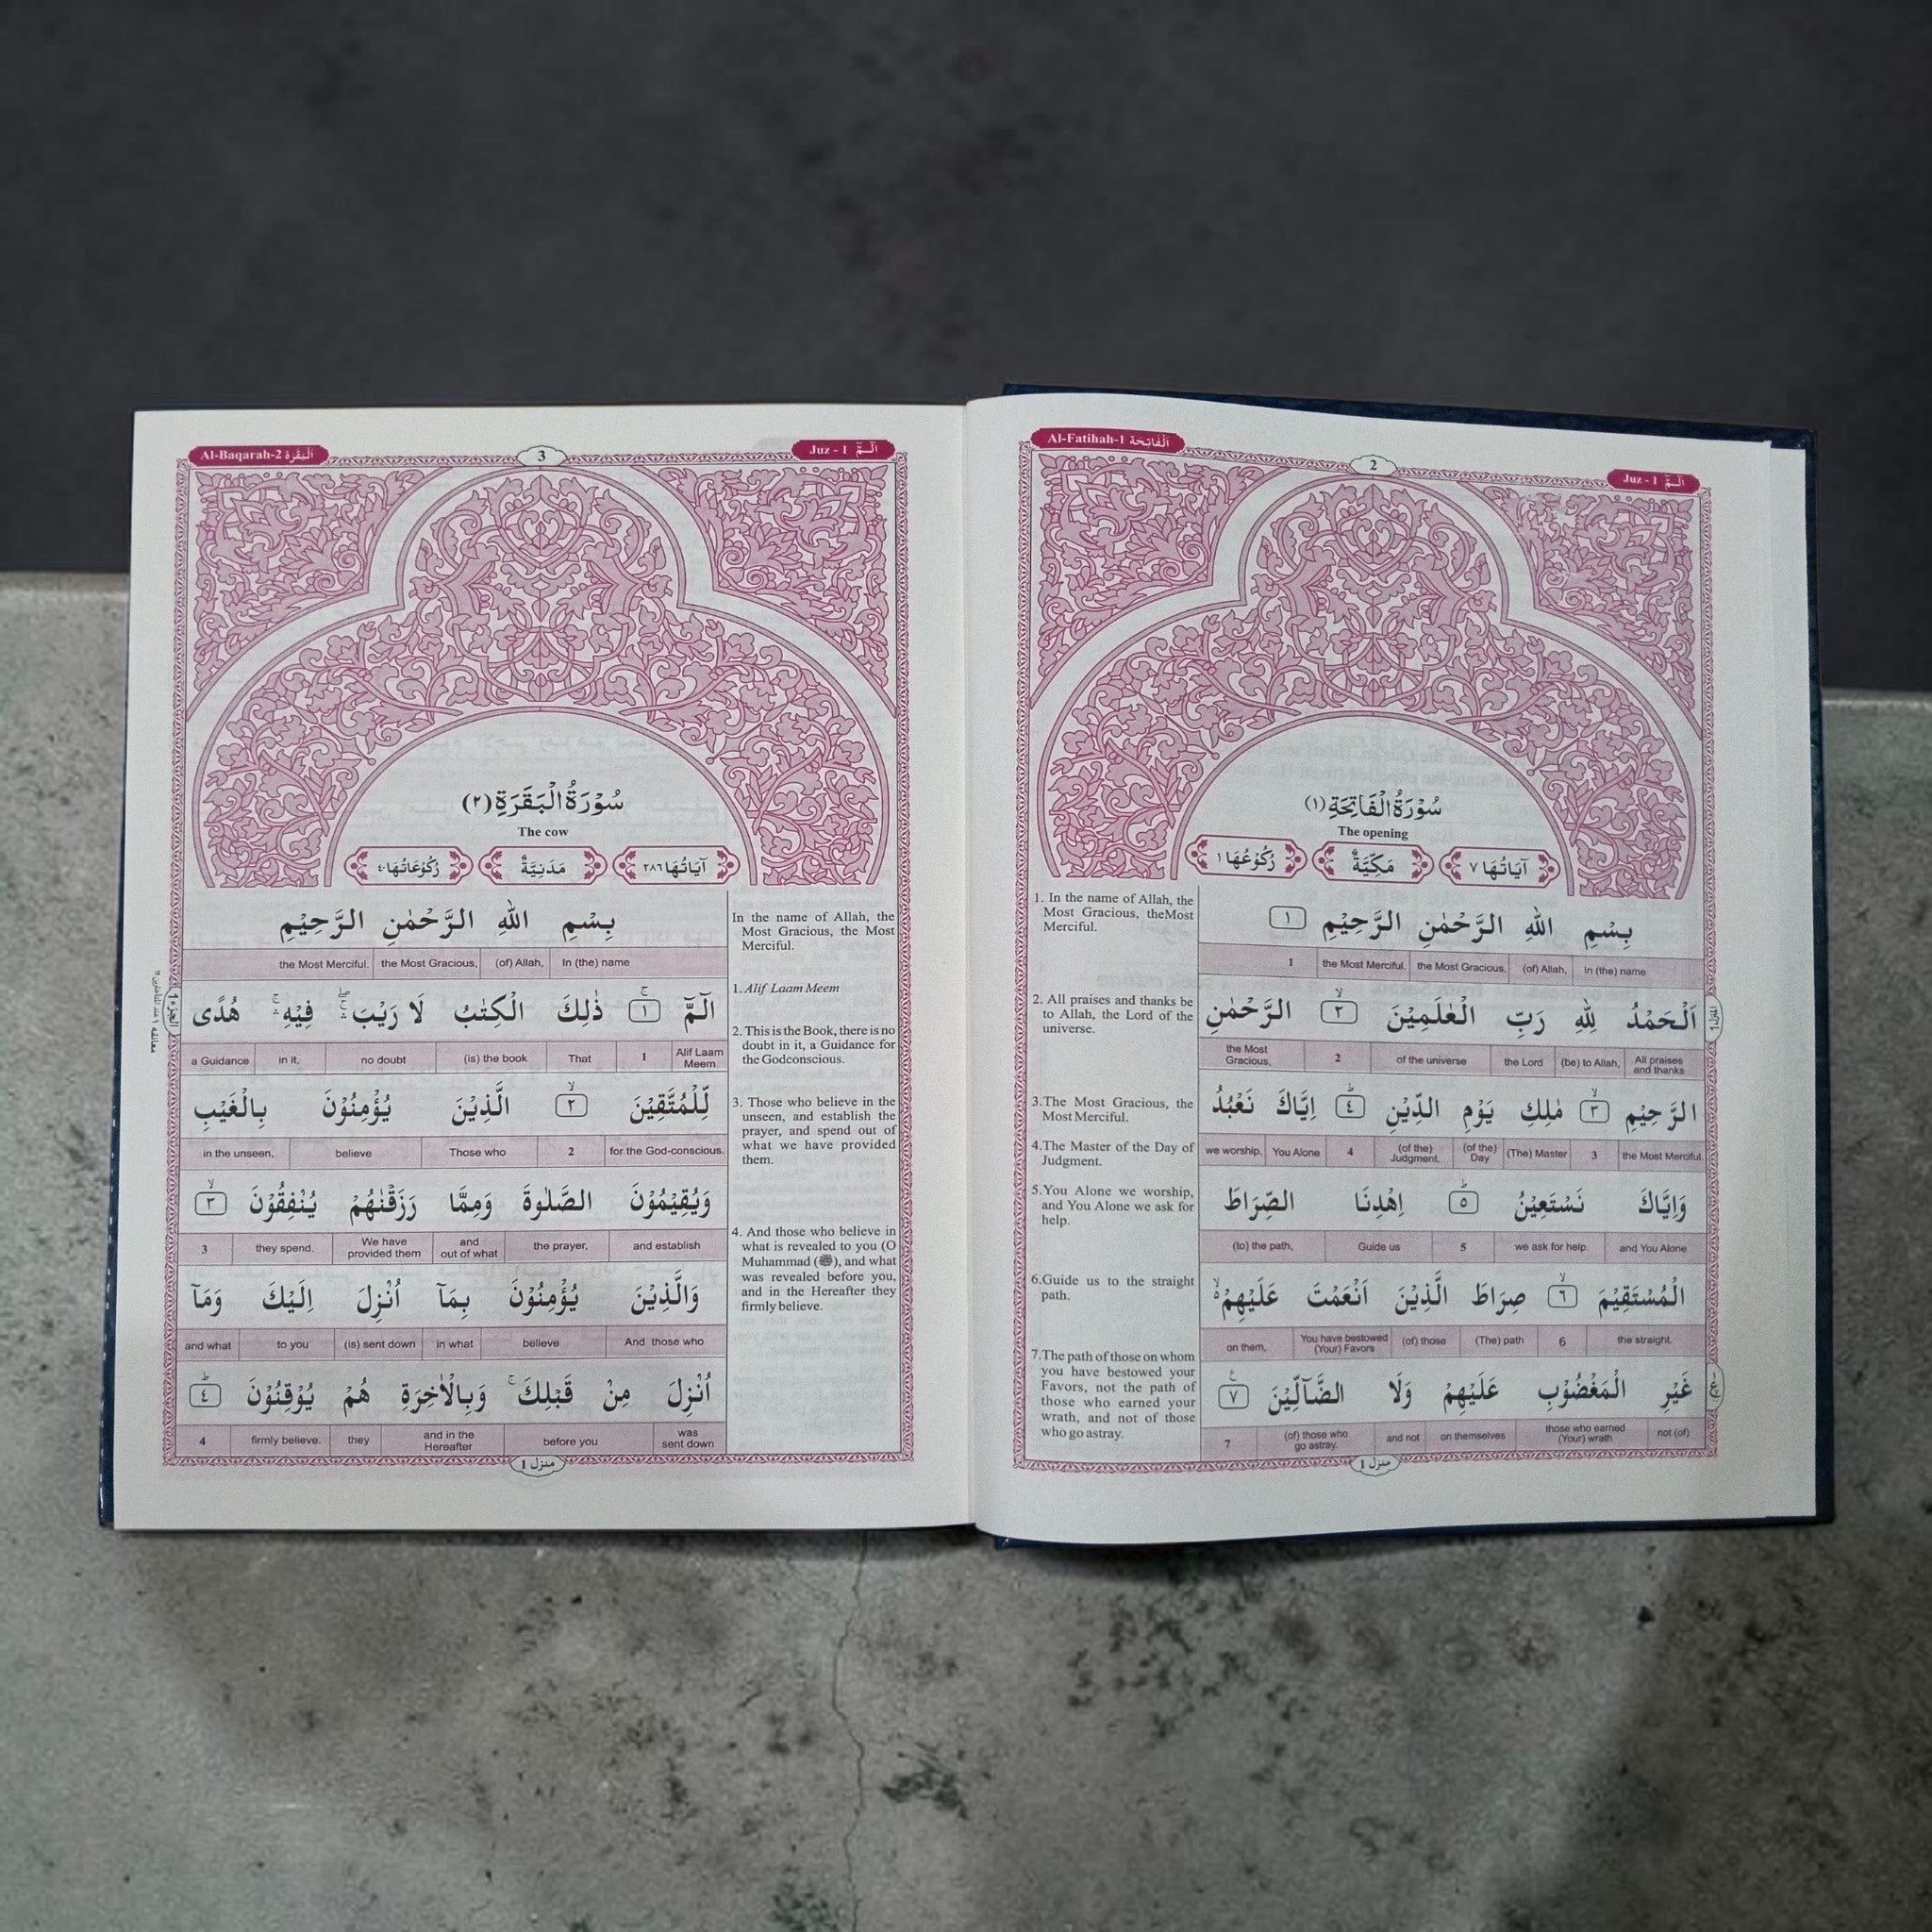 Al-Fatihah-1 اَلْفَاتِحَة
2
Juz - 1 الٓمّٓ
سُوْرَةُ الْفَاتِحَةِ (١)
The opening
اٰيَاتُهَا ٧ مَكِّيَّةٌ رُكُوْعُهَا ١
بِسْمِ اللهِ الرَّحْمٰنِ الرَّحِيْمِ ١
In (the) name (of) Allah, the Most Gracious, the Most Merciful. 1
اَلْحَمْدُ لِلّٰهِ رَبِّ الْعٰلَمِيْنَ ٢ الرَّحْمٰنِ
All praises and thanks (be) to Allah, the Lord of the universe 2 the Most Gracious,
الرَّحِيْمِ ٣ مٰلِكِ يَوْمِ الدِّيْنِ ٤ اِيَّاكَ نَعْبُدُ
the Most Merciful. 3 (The) Master (of the) Day (of the) Judgment. 4 You Alone we worship,
وَاِيَّاكَ نَسْتَعِيْنُ ٥ اِهْدِنَا الصِّرَاطَ
and You Alone we ask for help. 5 Guide us (to) the path,
الْمُسْتَقِيْمَ ٦ صِرَاطَ الَّذِيْنَ اَنْعَمْتَ عَلَيْهِمْ
the straight. 6 (The) path (of) those You have bestowed (Your) Favors on them,
غَيْرِ الْمَغْضُوْبِ عَلَيْهِمْ وَلَا الضَّآلِّيْنَ ٧
not (of) those who earned (Your) wrath on themselves and not (of) those who go astray. 7
1. In the name of Allah, the
Most Gracious, theMost
Merciful.
2. All praises and thanks be
to Allah, the Lord of the
universe.
3.The Most Gracious, the
Most Merciful.
4.The Master of the Day of
Judgment.
5.You Alone we worship,
and You Alone we ask for
help.
6.Guide us to the straight
path.
7.The path of those on whom
you have bestowed your
Favors, not the path of
those who earned your
wrath, and not of those
who go astray.
منزل 1
Al-Baqarah-2 اَلْبَقَرَة
3
Juz - 1 الٓمّٓ
سُوْرَةُ الْبَقَرَةِ (٢)
The cow
اٰيَاتُهَا ٢٨٦ مَدَنِيَّةٌ رُكُوْعَاتُهَا ٤٠
بِسْمِ اللهِ الرَّحْمٰنِ الرَّحِيْمِ
In (the) name (of) Allah, the Most Gracious, the Most Merciful.
الٓمّٓ ١ ذٰلِكَ الْكِتٰبُ لَا رَيْبَ فِيْهِ هُدًى
Alif Laam Meem 1 That (is) the book no doubt in it, a Guidance
لِّلْمُتَّقِيْنَ ٢ الَّذِيْنَ يُؤْمِنُوْنَ بِالْغَيْبِ
for the God-conscious. 2 Those who believe in the unseen,
وَيُقِيْمُوْنَ الصَّلٰوةَ وَمِمَّا رَزَقْنٰهُمْ يُنْفِقُوْنَ ٣
and establish the prayer, and out of what We have provided them they spend. 3
وَالَّذِيْنَ يُؤْمِنُوْنَ بِمَآ اُنْزِلَ اِلَيْكَ وَمَآ
And those who believe in what (is) sent down to you and what
اُنْزِلَ مِنْ قَبْلِكَ وَبِالْاٰخِرَةِ هُمْ يُوْقِنُوْنَ ٤
was sent down before you and in the Hereafter they firmly believe. 4
In the name of Allah, the
Most Gracious, the Most
Merciful.
1. Alif Laam Meem
2. This is the Book, there is no
doubt in it, a Guidance for
the Godconscious.
3. Those who believe in the
unseen, and establish the
prayer, and spend out of
what we have provided
them.
4. And those who believe in
what is revealed to you (O
Muhammad (ﷺ), and what
was revealed before you,
and in the Hereafter they
firmly believe.
الجزء 1
منزل 1